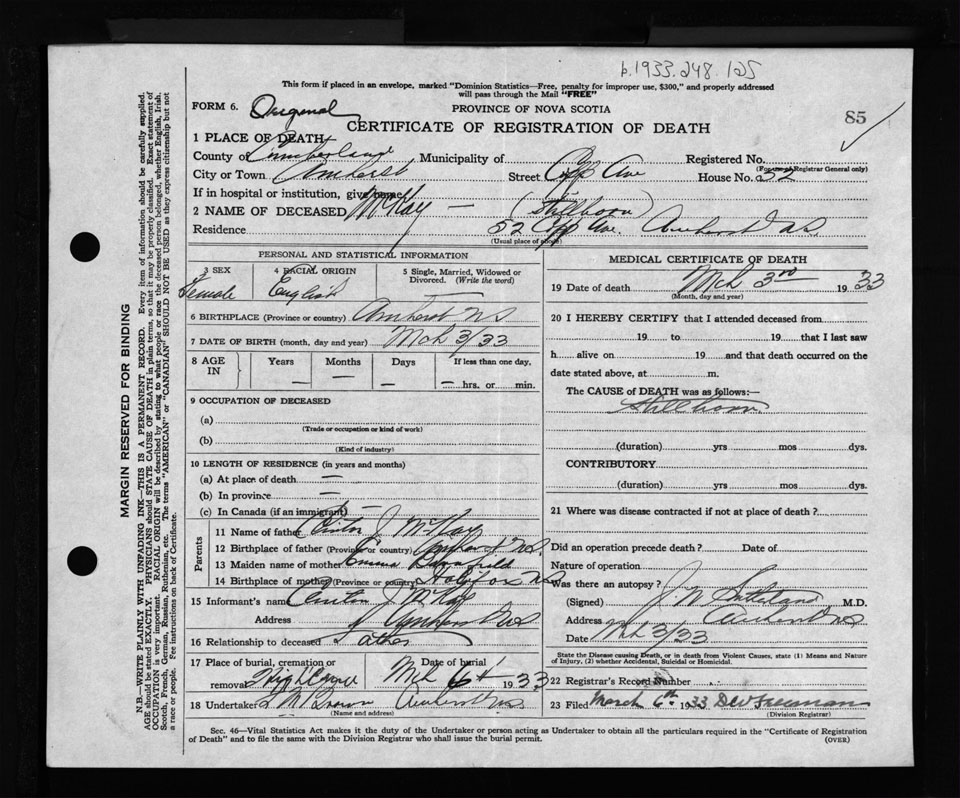 b.1933.248.125
This form if placed in an envelope, marked "Dominion Statistics—Free, penalty for improper use, $300," and properly addressed
will pass through the Mail "FREE"
FORM 6. Original
PROVINCE OF NOVA SCOTIA
85
CERTIFICATE OF REGISTRATION OF DEATH
1 PLACE OF DEATH
County of Cumberland Municipality of Registered No.
(For use of Registrar General only)
City or Town Amherst Street Copp Ave House No. 52
If in hospital or institution, give name
2 NAME OF DECEASED McKay — (Stillborn)
Residence 52 Copp Ave. Amherst N.S.
(Usual place of abode)
PERSONAL AND STATISTICAL INFORMATION
3 SEX Female
4 RACIAL ORIGIN English
5 Single, Married, Widowed or Divorced. (Write the word) —
6 BIRTHPLACE (Province or country) Amherst NS
7 DATE OF BIRTH (month, day and year) Mch 3/33
8 AGE IN Years Months Days If less than one day,
— — — — hrs. or min.
9 OCCUPATION OF DECEASED
(a)
(Trade or occupation or kind of work)
(b)
(Kind of industry)
10 LENGTH OF RESIDENCE (in years and months)
(a) At place of death —
(b) In province —
(c) In Canada (if an immigrant) —
Parents
11 Name of father Clinton J. McKay
12 Birthplace of father (Province or country) Amherst N.S.
13 Maiden name of mother Emma
14 Birthplace of mother (Province or country) Halifax NS
15 Informant's name Clinton J McKay
Address Amherst NS
16 Relationship to deceased Father
17 Place of burial, cremation or removal Date of burial Mch 6th 1933
18 Undertaker Brown Amherst NS
(Name and address)
MEDICAL CERTIFICATE OF DEATH
19 Date of death Mch 3rd 1933
(Month, day and year)
20 I HEREBY CERTIFY that I attended deceased from
19 to 19 that I last saw
h alive on 19 and that death occurred on the
date stated above, at m.
The CAUSE of DEATH was as follows:—
Stillborn
(duration) yrs mos dys.
CONTRIBUTORY
(duration) yrs mos dys.
21 Where was disease contracted if not at place of death?
Did an operation precede death? Date of
Nature of operation
Was there an autopsy?
(Signed) J. N. Sutherland M.D.
Address Amherst NS
Date Mch 3/33
State the Disease causing Death, or in death from Violent Causes, state (1) Means and Nature
of Injury, (2) whether Accidental, Suicidal or Homicidal.
22 Registrar's Record Number
23 Filed March 6th 1933 Freeman
(Division Registrar)
Sec. 46—Vital Statistics Act makes it the duty of the Undertaker or person acting as Undertaker to obtain all the particulars required in the "Certificate of Registration
of Death" and to file the same with the Division Registrar who shall issue the burial permit. (OVER)
MARGIN RESERVED FOR BINDING
N.B.—WRITE PLAINLY WITH UNFADING INK—THIS IS A PERMANENT RECORD. Every item of information should be carefully supplied.
AGE should be stated EXACTLY. PHYSICIANS should STATE CAUSE OF DEATH in plain terms, so that it may be properly classified. Exact statement of
OCCUPATION is very important. RACIAL ORIGIN will be described by stating to what people or race the deceased person belonged, whether English, Irish,
Scotch, French, German, Russian, Ruthenian, etc. The terms "AMERICAN" or "CANADIAN" SHOULD NOT BE USED as they express citizenship but not
a race or people. Fee instructions on back of Certificate.